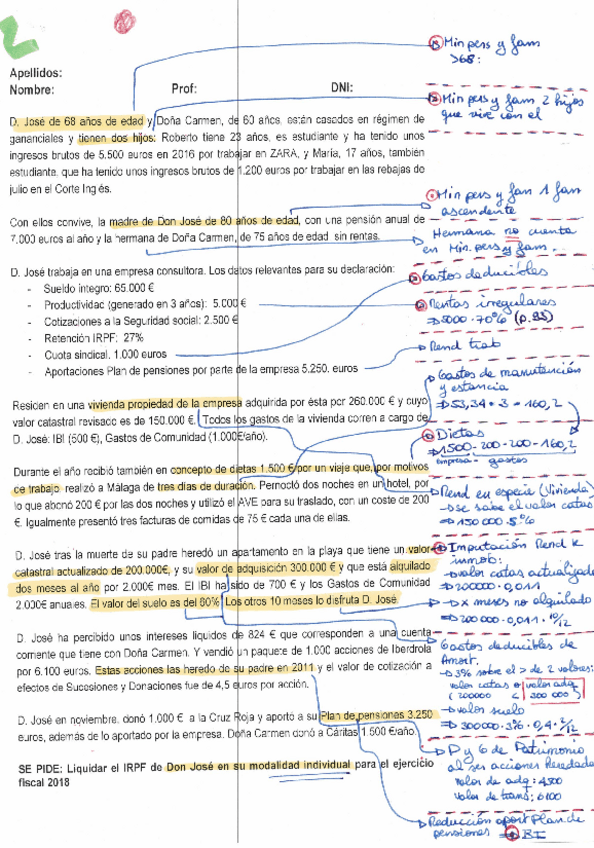 Apellidos:
Nombre: Prof: DNI:
D. José de 68 años de edad y Doña Carmen, de 60 años, están casados en régimen de
gananciales y tienen dos hijos: Roberto tiene 23 años, es estudiante y ha tenido unos
ingresos brutos de 5.500 euros en 2016 por trabajar en ZARA, y María, 17 años, también
estudiante, que ha tenido unos ingresos brutos de 1.200 euros por trabajar en las rebajas do
julio en el Corte Inglés.
Con ellos convive, la madre de Don José de 80 años de edad, con una pensión anual de
7.000 euros al año y la hermana de Doña Carmen, de 75 años de edad sin rentas.
D. José trabaja en una empresa consultora. Los datos relevantes para su declaración:
- Sueldo integro: 65.000 €
- Productividac (generado en 3 años): 5.000 €
- Cotizaciones a la Seguridad social: 2.500 €
- Retención IRPF: 27%
- Cuota sindical. 1.000 euros
- Aportaciones Plan de pensiones por parte de la empresa 5.250. euros
Residen en una vivienda propiedad de la empresa adquirida por ésta por 260.000 € y cuyo
valor catastral revisado es de 150.000 €. Todos los gastos de la vivienda corren a cargo de
D. José: IBI (500 €), Gastos de Comunidad (1.000€/año).
Durante el año recibió también en concepto de dietas 1.500 € por un viaje que, por motivos
de trabajo realizó a Málaga de tres días de duración. Pernoctó dos noches en un hotel, por
lo que abonó 200 € por las dos noches y utilizó el AVE para su traslado, con un coste de 200
€. Igualmente presentó tres facturas de comidas de 75 € cada una de ellas.
D. José tras la muerte de su padre heredó un apartamento en la playa que tiene un valor
catastral actualizado de 200.000€, y su valor de adquisición 300.000 € y que está alquilado
dos meses al año por 2.000€ mes. El IBI ha sido de 700 € y los Gastos de Comunidad
2.000€ anuales. El valor del suelo es del 60% Los otros 10 meses lo disfruta D. José.
D. José ha percibido unos intereses líquidos de 824 € que corresponden a una cuenta
corriente que tiene con Doña Carmen. Y vendió un paquete de 1.000 acciones de Iberdrola
por 6.100 euros. Estas acciones las heredo de su padre en 2011 y el valor de cotización a
efectos de Sucesiones y Donaciones fue de 4,5 euros por acción.
D. José en noviembre. donó 1.000 € a la Cruz Roja y aportó a su Plan de pensiones 3.250
euros, además de lo aportado por la empresa. Doña Carmen donó a Cáritas 1.500 €/año.
SE PIDE: Liquidar el IRPF de Don José en su modalidad individual para el ejercicio
fiscal 2018
Min pers y fam
>68:
Min pers y fam 2 hijos
que vive con el
Min pers y fam 1 fam
ascendente
Hermana no cuenta
en Min. pers y fam.
Gastos deducibles
Rentas irregulares
⇒ 5000 · 70% (p. 93)
Rend trab
Gastos de manutención
y estancia
⇒ 53,34 · 3 = 160,2
Dietas
⇒ 1500 - 200 - 200 - 160,2
empresa - gastos
Rend en especie (Vivienda)
→ se sabe el valor catas
⇒ 150000 · 5%
Imputación Rend K
inmob:
→ valor catas actualizado
⇒ 200000 · 0,011
→ x meses no alquilado
⇒ 200000 · 0,011 · 10/12
Gastos deducibles de
Amort.
→ 3% sobre el > de 2 valores:
valor catas o valor adq
(200000 < 300000)
→ valor suelo
⇒ 300000 · 3% · 0,4 · 2/12
P y G de Patrimonio
al ser acciones heredadas
Valor de adq: 4500
Valor de trans: 6100
Reducción aport Plan de
pensiones ⇒ BI